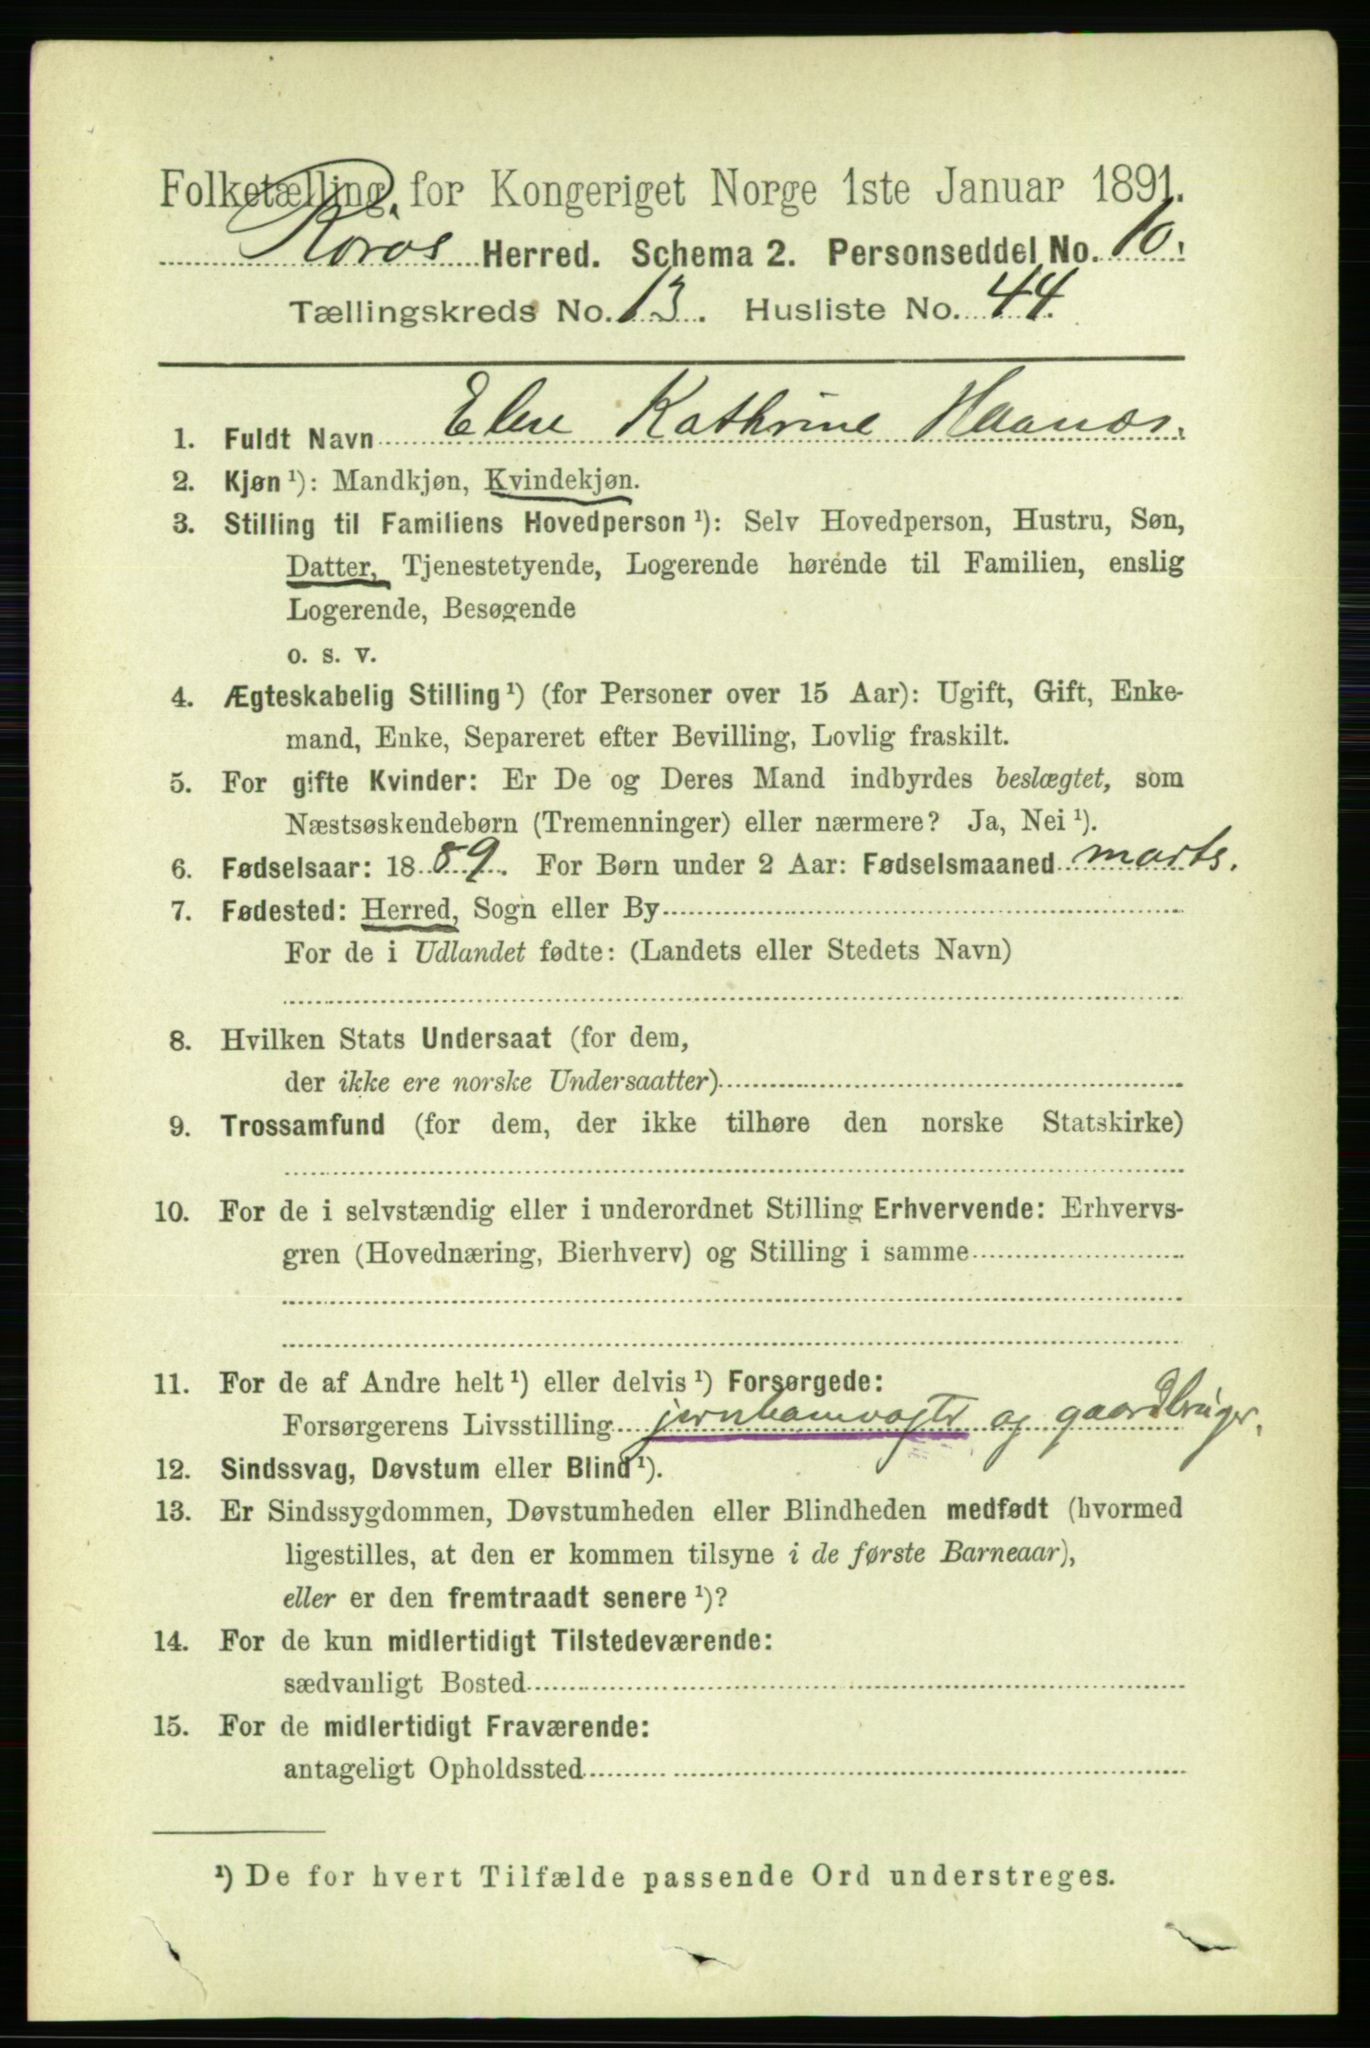 Folketælling for Kongeriget Norge 1ste Januar 1891.
Røros Herred. Schema 2. Personseddel No. 10.
Tællingskreds No. 13. Husliste No. 44.
1. Fuldt Navn Elen Kathrine Haanæs.
2. Kjøn ¹): Mandkjøn, Kvindekjøn.
3. Stilling til Familiens Hovedperson ¹): Selv Hovedperson, Hustru, Søn,
Datter, Tjenestetyende, Logerende hørende til Familien, enslig
Logerende, Besøgende
o. s. v.
4. Ægteskabelig Stilling ¹) (for Personer over 15 Aar): Ugift, Gift, Enke-
mand, Enke, Separeret efter Bevilling, Lovlig fraskilt.
5. For gifte Kvinder: Er De og Deres Mand indbyrdes beslægtet, som
Næstsøskendebørn (Tremenninger) eller nærmere? Ja, Nei ¹).
6. Fødselsaar: 1889. For Børn under 2 Aar: Fødselsmaaned marts.
7. Fødested: Herred, Sogn eller By
For de i Udlandet fødte: (Landets eller Stedets Navn)
8. Hvilken Stats Undersaat (for dem,
der ikke ere norske Undersaatter)
9. Trossamfund (for dem, der ikke tilhøre den norske Statskirke)
10. For de i selvstændig eller i underordnet Stilling Erhvervende: Erhvervs-
gren (Hovednæring, Bierhverv) og Stilling i samme
11. For de af Andre helt ¹) eller delvis ¹) Forsørgede:
Forsørgerens Livsstilling jernbanevogter og gaardbruger.
12. Sindssvag, Døvstum eller Blind ¹).
13. Er Sindssygdommen, Døvstumheden eller Blindheden medfødt (hvormed
ligestilles, at den er kommen tilsyne i de første Barneaar),
eller er den fremtraadt senere ¹)?
14. For de kun midlertidigt Tilstedeværende:
sædvanligt Bosted
15. For de midlertidigt Fraværende:
antageligt Opholdssted
¹) De for hvert Tilfælde passende Ord understreges.